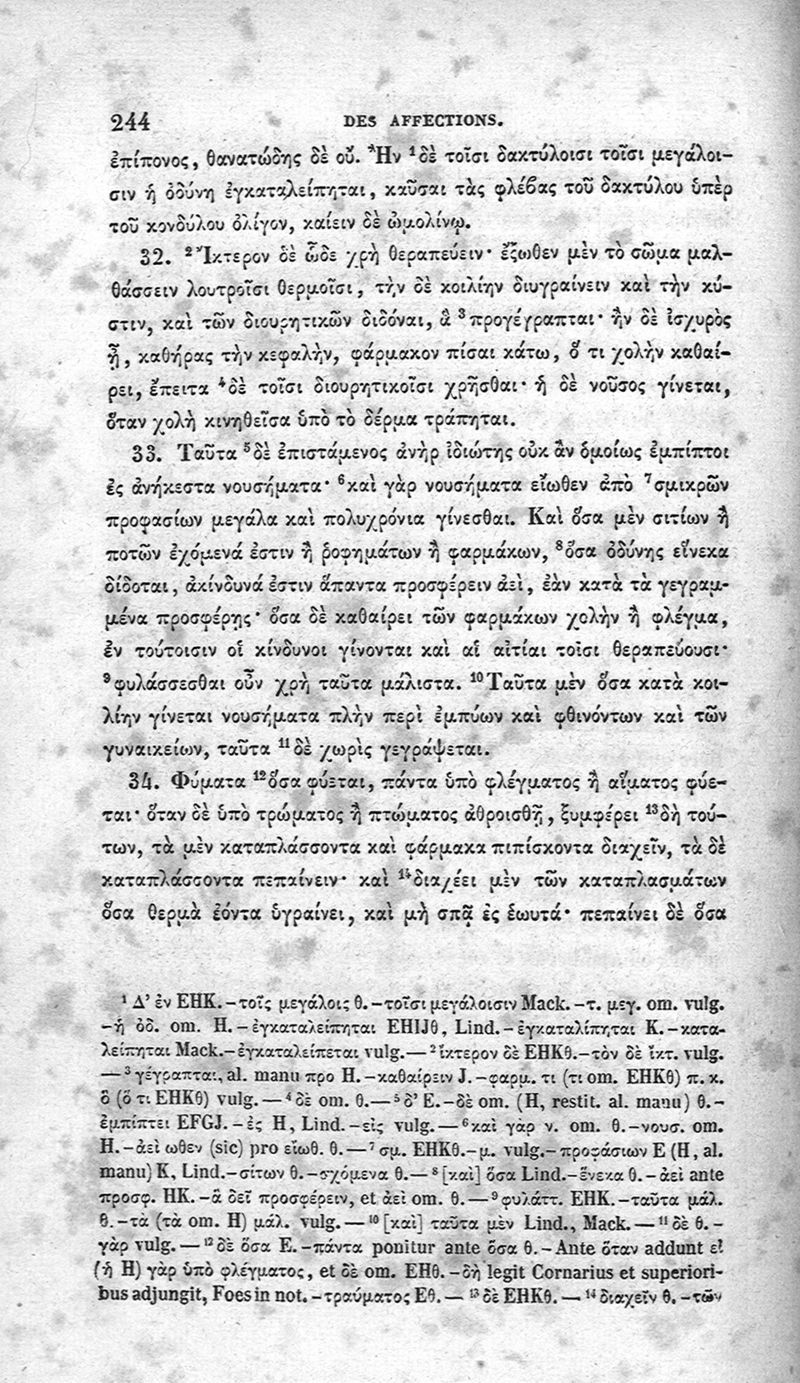 244 DES AFFECTIONS.
ἐπίπονος, θανατώδης δὲ οὔ. Ἢν ¹δὲ τοῖσι δακτύλοισι τοῖσι μεγάλοι-
σιν ἡ ὀδύνη ἐγκαταλείπηται, καῦσαι τὰς φλέϐας τοῦ δακτύλου ὑπὲρ
τοῦ κονδύλου ὀλίγον, καίειν δὲ ὠμολίνῳ.
32. ²Ἴκτερον δὲ ὧδε χρὴ θεραπεύειν· ἔξωθεν μὲν τὸ σῶμα μαλ-
θάσσειν λουτροῖσι θερμοῖσι, τὴν δὲ κοιλίην διυγραίνειν καὶ τὴν κύ-
στιν, καὶ τῶν διουρητικῶν διδόναι, ἃ ³προγέγραπται· ἢν δὲ ἰσχυρὸς
ᾖ, καθήρας τὴν κεφαλὴν, φάρμακον πῖσαι κάτω, ὅ τι χολὴν καθαί-
ρει, ἔπειτα ⁴δὲ τοῖσι διουρητικοῖσι χρῆσθαι· ἡ δὲ νοῦσος γίνεται,
ὅταν χολὴ κινηθεῖσα ὑπὸ τὸ δέρμα τράπηται.
33. Ταῦτα ⁵δὲ ἐπιστάμενος ἀνὴρ ἰδιώτης οὐκ ἂν ὁμοίως ἐμπίπτοι
ἐς ἀνήκεστα νουσήματα· ⁶καὶ γὰρ νουσήματα εἴωθεν ἀπὸ ⁷σμικρῶν
προφασίων μεγάλα καὶ πολυχρόνια γίνεσθαι. Καὶ ὅσα μὲν σιτίων ἢ
ποτῶν ἐχόμενά ἐστιν ἢ ῥοφημάτων ἢ φαρμάκων, ⁸ὅσα ὀδύνης εἵνεκα
δίδοται, ἀκίνδυνά ἐστιν ἅπαντα προσφέρειν ἀεὶ, ἐὰν κατὰ τὰ γεγραμ-
μένα προσφέρῃς· ὅσα δὲ καθαίρει τῶν φαρμάκων χολὴν ἢ φλέγμα,
ἐν τούτοισιν οἱ κίνδυνοι γίνονται καὶ αἱ αἰτίαι τοῖσι θεραπεύουσι·
⁹φυλάσσεσθαι οὖν χρὴ ταῦτα μάλιστα. ¹⁰Ταῦτα μὲν ὅσα κατὰ κοι-
λίην γίνεται νουσήματα πλὴν περὶ ἐμπύων καὶ φθινόντων καὶ τῶν
γυναικείων, ταῦτα ¹¹δὲ χωρὶς γεγράψεται.
34. Φύματα ¹²ὅσα φύεται, πάντα ὑπὸ φλέγματος ἢ αἵματος φύε-
ται· ὅταν δὲ ὑπὸ τρώματος ἢ πτώματος ἀθροισθῇ, ξυμφέρει ¹³δὴ τού-
των, τὰ μὲν καταπλάσσοντα καὶ φάρμακα πιπίσκοντα διαχεῖν, τὰ δὲ
καταπλάσσοντα πεπαίνειν· καὶ ¹⁴διαχέει μὲν τῶν καταπλασμάτων
ὅσα θερμὰ ἐόντα ὑγραίνει, καὶ μὴ σπᾷ ἐς ἑωυτά· πεπαίνει δὲ ὅσα
¹ Δ’ ἐν EHK. – τοῖς μεγάλοις θ. – τοῖσι μεγάλοισιν Mack. – τ. μεγ. om. vulg.
– ἡ ὀδ. om. H. – ἐγκαταλείπηται EHIJθ, Lind. – ἐγκαταλίπηται K. – κατα-
λείπηται Mack. – ἐγκαταλείπεται vulg. — ² ἴκτερον δὲ EHKθ. – τὸν δὲ ἴκτ. vulg.
— ³ γέγραπται, al. manu προ H. – καθαίρειν J. – φαρμ. τι (τι om. EHKθ) π. κ.
ὃ (ὅ τι EHKθ) vulg. — ⁴ δὲ om. θ. — ⁵ δ’ E. – δὲ om. (H, restit. al. manu) θ. –
ἐμπίπτει EFGJ. – ἐς H, Lind. – εἰς vulg. — ⁶ καὶ γὰρ ν. om. θ. – νουσ. om.
H. – ἀεὶ ωθεν (sic) pro εἴωθ. θ. — ⁷ σμ. EHKθ. – μ. vulg. – προφάσιων E (H, al.
manu) K, Lind. – σίτων θ. – σχόμενα θ. — ⁸ [καὶ] ὅσα Lind. – ἕνεκα θ. – ἀεὶ ante
προσφ. HK. – ἃ δεῖ προσφέρειν, et ἀεὶ om. θ. — ⁹ φυλάττ. EHK. – ταῦτα μάλ.
θ. – τὰ (τὰ om. H) μάλ. vulg. — ¹⁰ [καὶ] ταῦτα μὲν Lind., Mack. — ¹¹ δὲ θ. –
γὰρ vulg. — ¹² δὲ ὅσα E. – πάντα ponitur ante ὅσα θ. – Ante ὅταν addunt εἰ
(ἡ H) γὰρ ὑπὸ φλέγματος, et δὲ om. EHθ. – δὴ legit Cornarius et superiori-
bus adjungit, Foes in not. – τραύματος Eθ. — ¹³ δὲ EHKθ. — ¹⁴ διαχεῖν θ. – τῶν